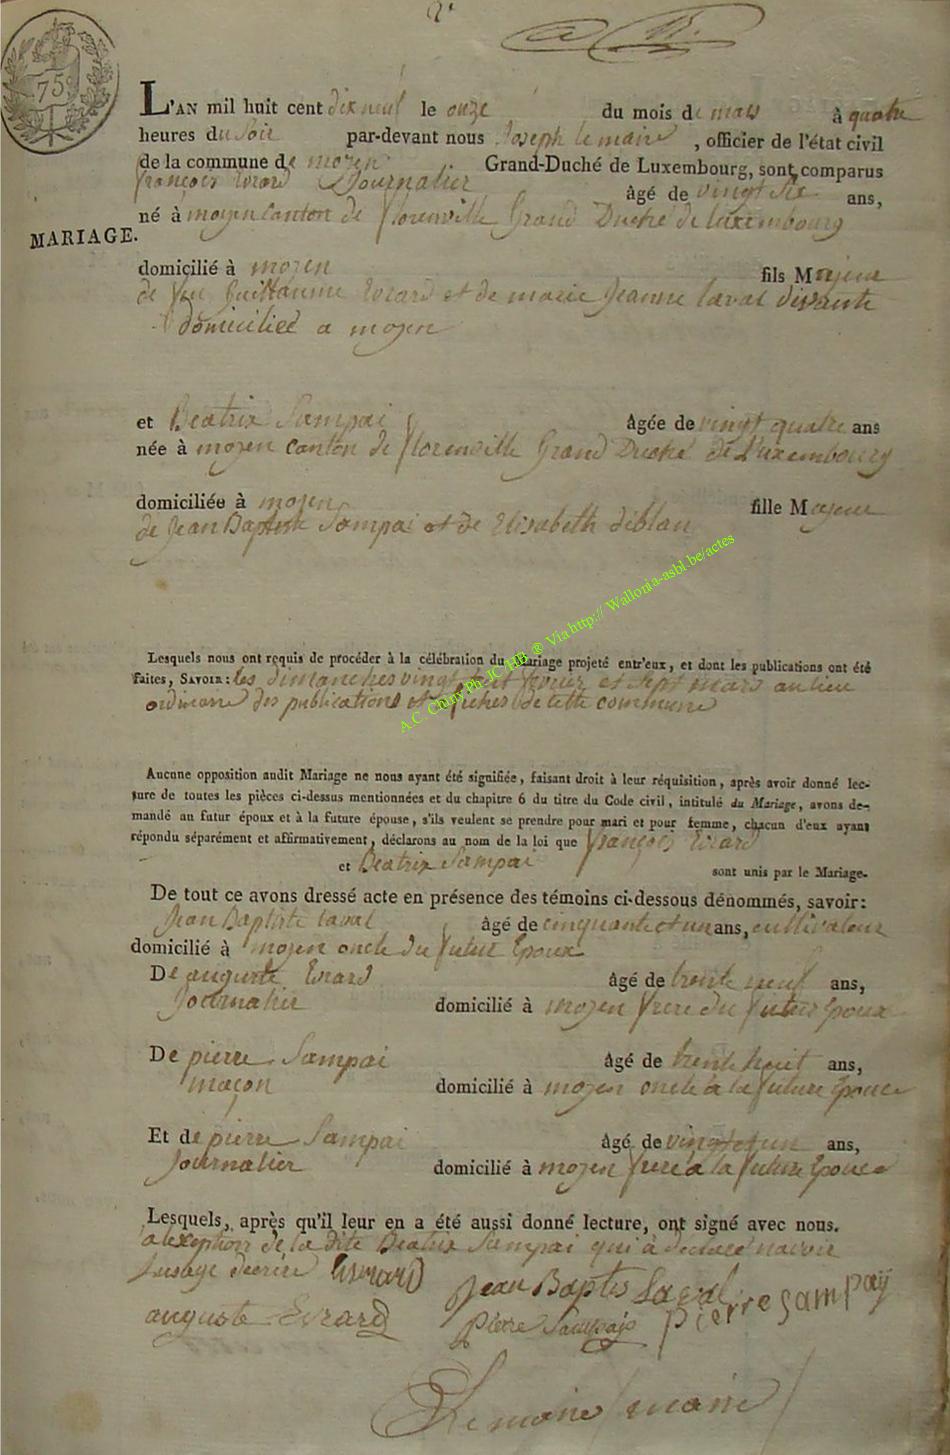 2e
75c
L'AN mil huit cent dix neuf le onze du mois de mars à quatre
heures du soir par-devant nous Joseph lemaire, officier de l'état civil
de la commune de moyen Grand-Duché de Luxembourg, sont comparus
françois Evrard Journalier âgé de vingt six ans,
né à moyen canton de florenville Grand Duché de luxembourg
MARIAGE.
domicilié à moyen fils Majeur
de feu Guillaume Evrard et de marie Jeanne laval vivante
domiciliee a moyen
et Beatrix Sampai âgée de vingt quatre ans
née à moyen canton de florenville Grand Duché de Luxembourg
domiciliée à moyen fille Majeur
de Jean Baptiste Sampai et de Elisabeth diblan
A.C Chiny Ph JC HB ® Via http:// Wallonia-asbl.be/actes
Lesquels nous ont requis de procéder à la célébration du Mariage projeté entr'eux, et dont les publications ont été
faites, SAVOIR: les dimanches vingt huit fevrier et sept mars au lieu
ordinaire des publications et afiches de cette commune
Aucune opposition audit Mariage ne nous ayant été signifiée, faisant droit à leur réquisition, après avoir donné lec-
ture de toutes les pièces ci-dessus mentionnées et du chapitre 6 du titre du Code civil, intitulé du Mariage, avons de-
mandé au futur époux et à la future épouse, s'ils veulent se prendre pour mari et pour femme, chacun d'eux ayant
répondu séparément et affirmativement, déclarons au nom de la loi que françois Evrard
et Beatrix Sampai sont unis par le Mariage.
De tout ce avons dressé acte en présence des témoins ci-dessous dénommés, savoir:
Jean Baptiste laval âgé de cinquante et un ans, cultivateur
domicilié à moyen oncle du futur Epoux
De auguste Evrard âgé de trente neuf ans,
Journalier domicilié à moyen frere du futur Epoux
De pierre Sampai âgé de trente huit ans,
maçon domicilié à moyen oncle à la future Epouce
Et de pierre Sampai âgé de vingt et un ans,
Journalier domicilié à moyen frere à la future Epouce
Lesquels, après qu'il leur en a été aussi donné lecture, ont signé avec nous.
a lexception de la dite Beatrix Sampai qui à déclaré navoir
lusage decrire Evrard Jean Baptis Laval
auguste Evrard Pierre Sampaÿ pierre sampaÿ
Lemaire maire